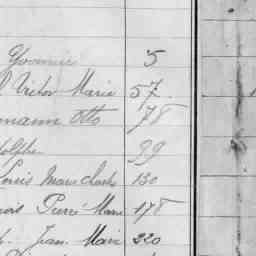 Yvonnic 5
Victor Marie 57
mann Otto 78
dolphe 99
Louis Marie Charles 130
ois Pierre Marie 178
Jean Marie 220